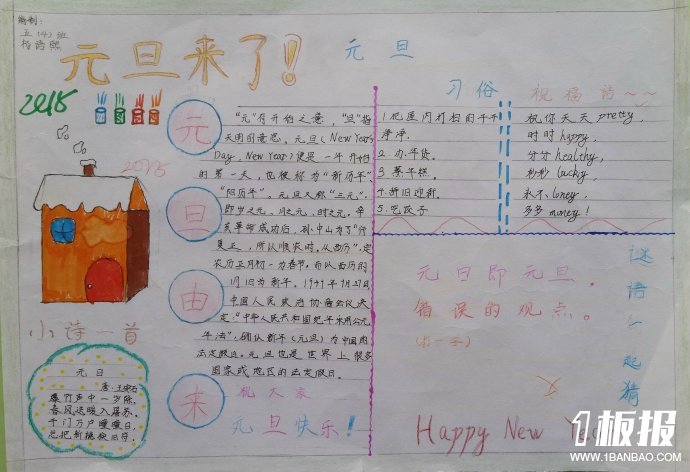 编制:
五(4)班
元旦来了!
2015
2015
元旦由来
"元"有开始之意,"旦"指
天明的意思。元旦(New Year's
Day, New Year)便是一年开始
的第一天,也被称为"新历年"
"阳历年"。元旦又称"三元",
即岁之元、月之元、时之元。辛
亥革命成功后,孙中山为了"行
夏正,所以顺农时,从西历",定
农历正月初一为春节,而以西历的
1月1日为新年。1949年9月27日
中国人民政治协商会议决
定:"中华人民共和国纪年采用公元
年法",确认新年(元旦)为中国的
法定假日。元旦也是世界上很多
国家或地区的法定假日。
祝大家
元旦快乐!
小诗一首
元日
宋:王安石
爆竹声中一岁除,
春风送暖入屠苏。
千门万户曈曈日,
总把新桃换旧符。
元旦
习俗
1.把屋内打扫的干干
净净.
2.办年货.
3.蒸年糕.
4.辞旧迎新.
5.吃饺子
祝福语~~
祝你天天pretty,
时时happy,
分分healthy,
秒秒lucky,
永不loney,
多多money!
谜语一起猜
元日即元旦。
错误的观点。
(打一字)
Happy New Year
1板报
WWW.1BANBAO.COM